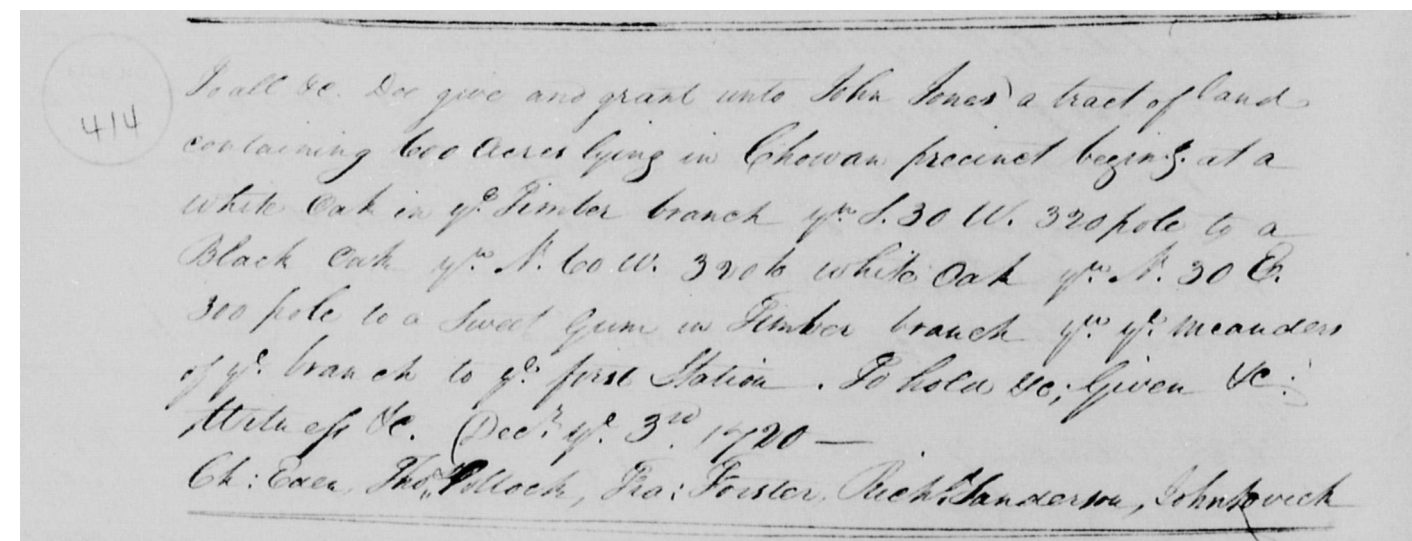 414
To all &c. Doe give and grant unto John Jones a tract of land
containing 600 Acres lying in Chowan precinct begining at a
white Oak in ye Timber branch yn S. 30 W. 320 pole to a
Black Oak yn N. 60 W. 320 to white Oak yn N. 30 E.
300 pole to a Sweet Gum in Timber branch yn ye meanders
of ye branch to ye first Station. To hold &c; Given &c:
Witness &c. Decr ye 3rd 1720 —
Ch: Eden, Tho. Pollock, Fra: Forster, Richd Sanderson, John Lovick